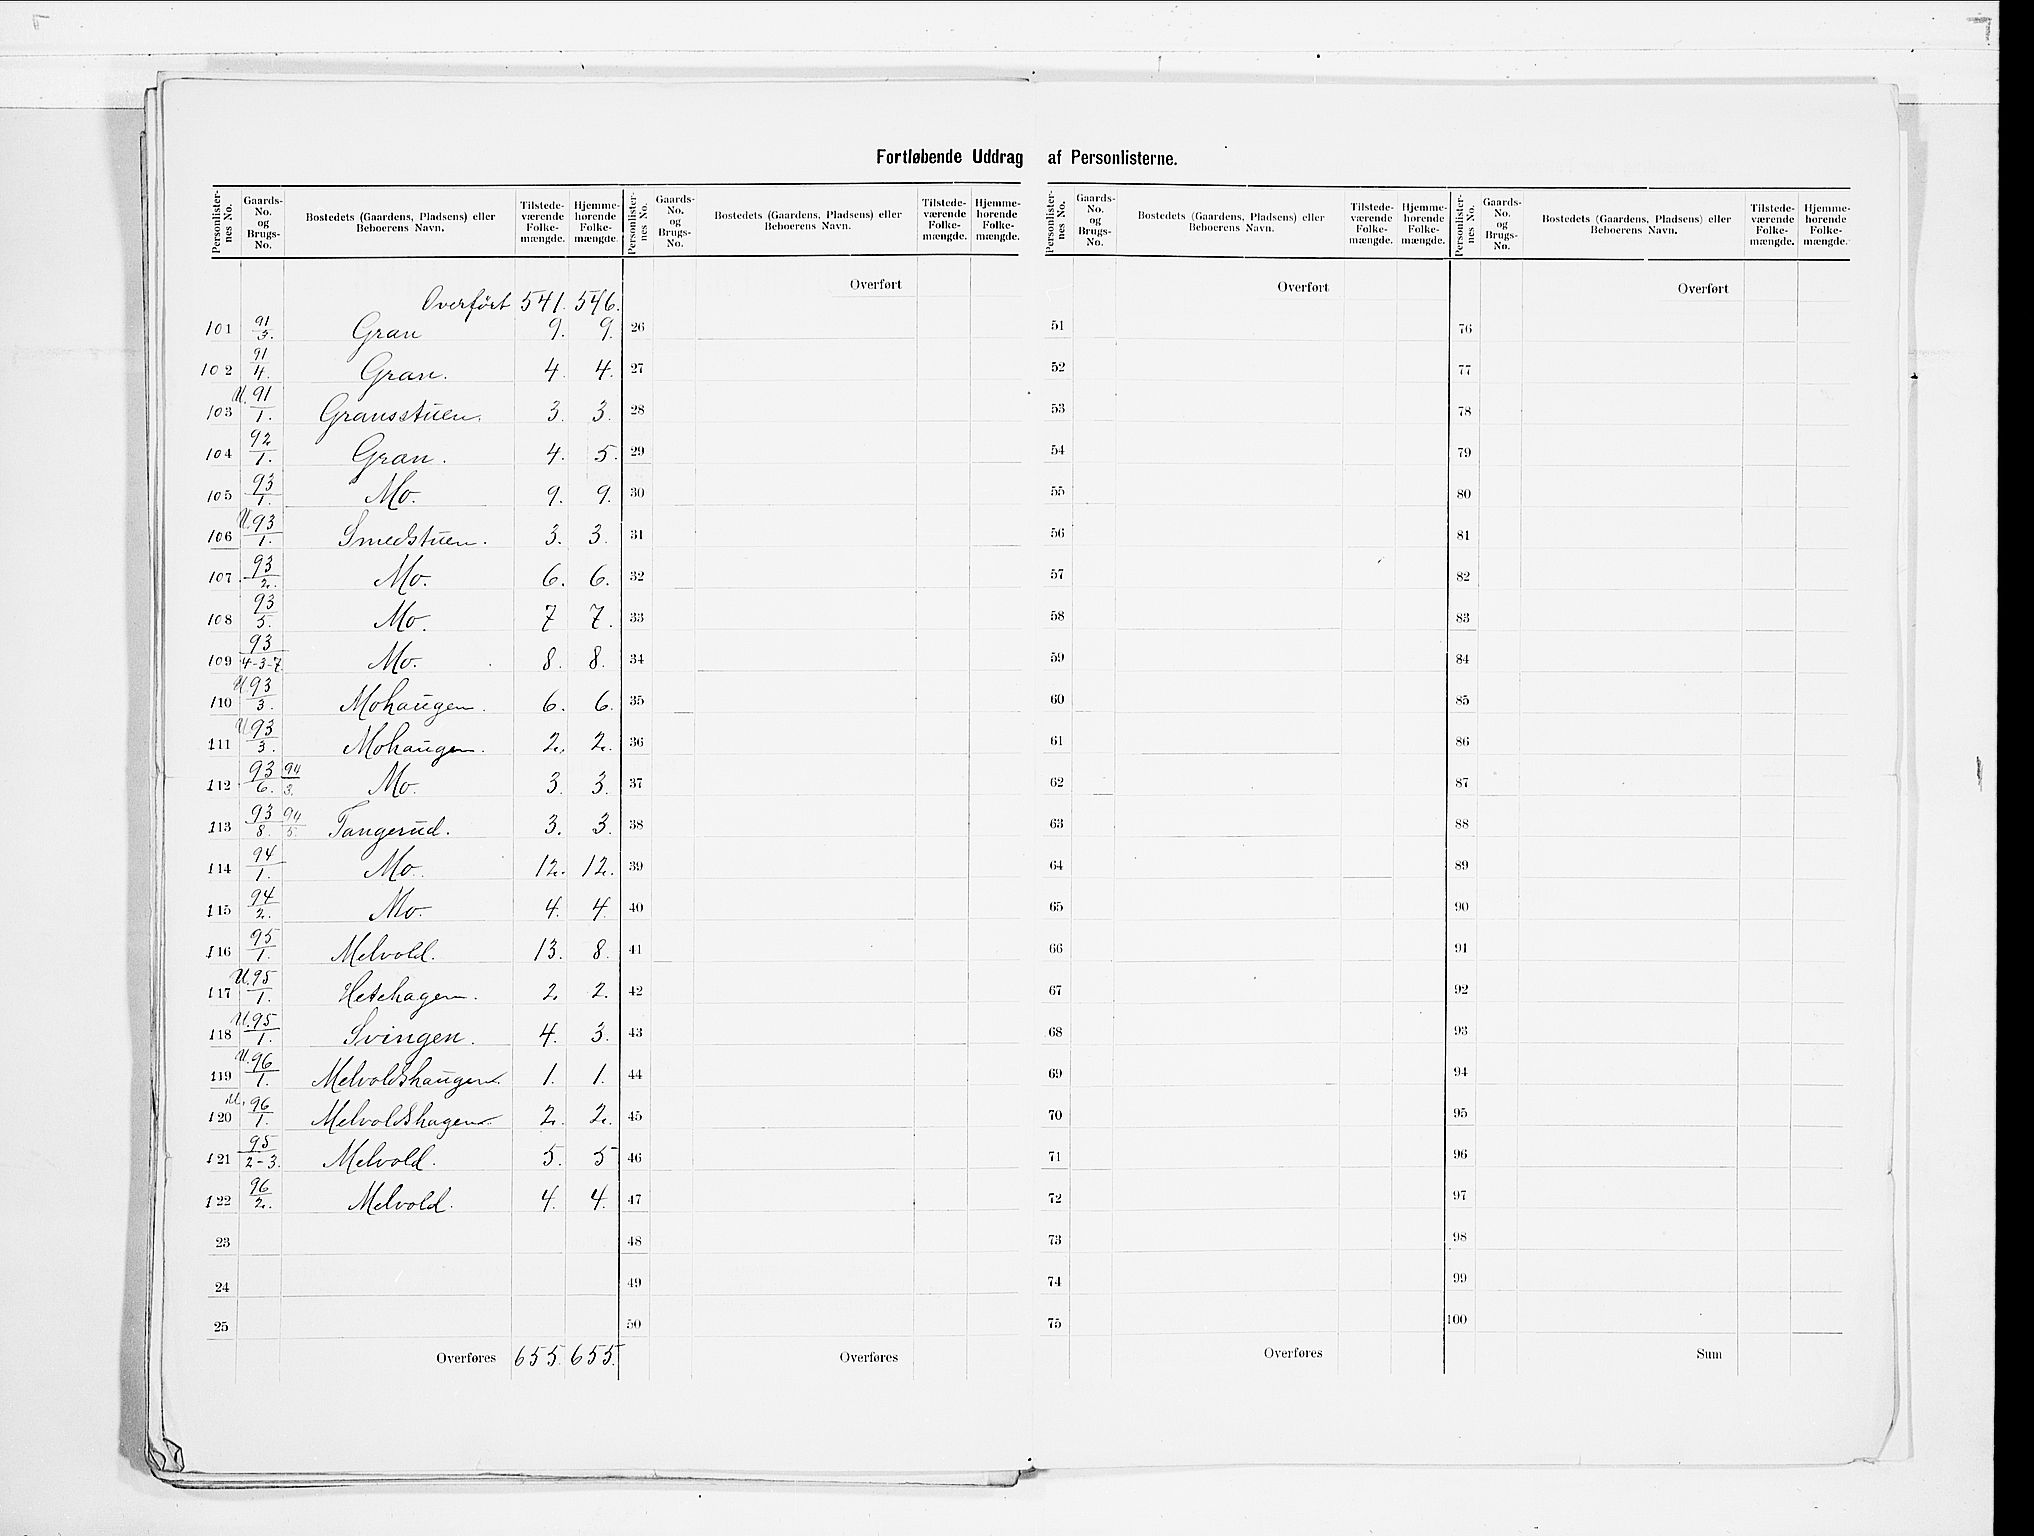 Fortløbende Uddrag af Personlisterne.
Personlister-nes No. Gaards-No. og Brugs-No. Bostedets (Gaardens, Pladsens) eller Beboerens Navn. Tilstede-værende Folke-mængde. Hjemme-hørende Folke-mængde. Personlister-nes No. Gaards-No. og Brugs-No. Bostedets (Gaardens, Pladsens) eller Beboerens Navn. Tilstede-værende Folke-mængde. Hjemme-hørende Folke-mængde. Personlister-nes No. Gaards-No. og Brugs-No. Bostedets (Gaardens, Pladsens) eller Beboerens Navn. Tilstede-værende Folke-mængde. Hjemme-hørende Folke-mængde. Personlister-nes No. Gaards-No. og Brugs-No. Bostedets (Gaardens, Pladsens) eller Beboerens Navn. Tilstede-værende Folke-mængde. Hjemme-hørende Folke-mængde.
Overført 541. 546. Overført Overført Overført
101 91/3. Gran 9. 9. 26 51 76
102 91/4. Gran. 4. 4. 27 52 77
103 U. 91/1. Gransstuen. 3. 3. 28 53 78
104 92/1. Gran. 4. 5. 29 54 79
105 93/1. Mo. 9. 9. 30 55 80
106 U. 93/1. Smedstuen. 3. 3. 31 56 81
107 93/2. Mo. 6. 6. 32 57 82
108 93/5. Mo. 7 7. 33 58 83
109 93/4-3-7 Mo. 8. 8. 34 59 84
110 U. 93/3. Mohaugen. 6. 6. 35 60 85
111 U. 93/3. Mohaugen. 2. 2. 36 61 86
112 93/6. 94/3. Mo. 3. 3. 37 62 87
113 93/8. 94/5. Tangerud. 3. 3. 38 63 88
114 94/1. Mo. 12. 12. 39 64 89
115 94/2. Mo. 4. 4. 40 65 90
116 95/1. Melvold. 13. 8. 41 66 91
117 U. 95/1. Hetehagen. 2. 2. 42 67 92
118 U. 95/1. Svingen. 4. 3. 43 68 93
119 U. 96/1. Melvoldshaugen. 1. 1. 44 69 94
120 U. 96/1. Melvoldshagen. 2. 2. 45 70 95
121 95/2-3. Melvold. 5. 5 46 71 96
122 96/2. Melvold. 4. 4. 47 72 97
23 48 73 98
24 49 74 99
25 50 75 100
Overføres 655. 655. Overføres Overføres Sum